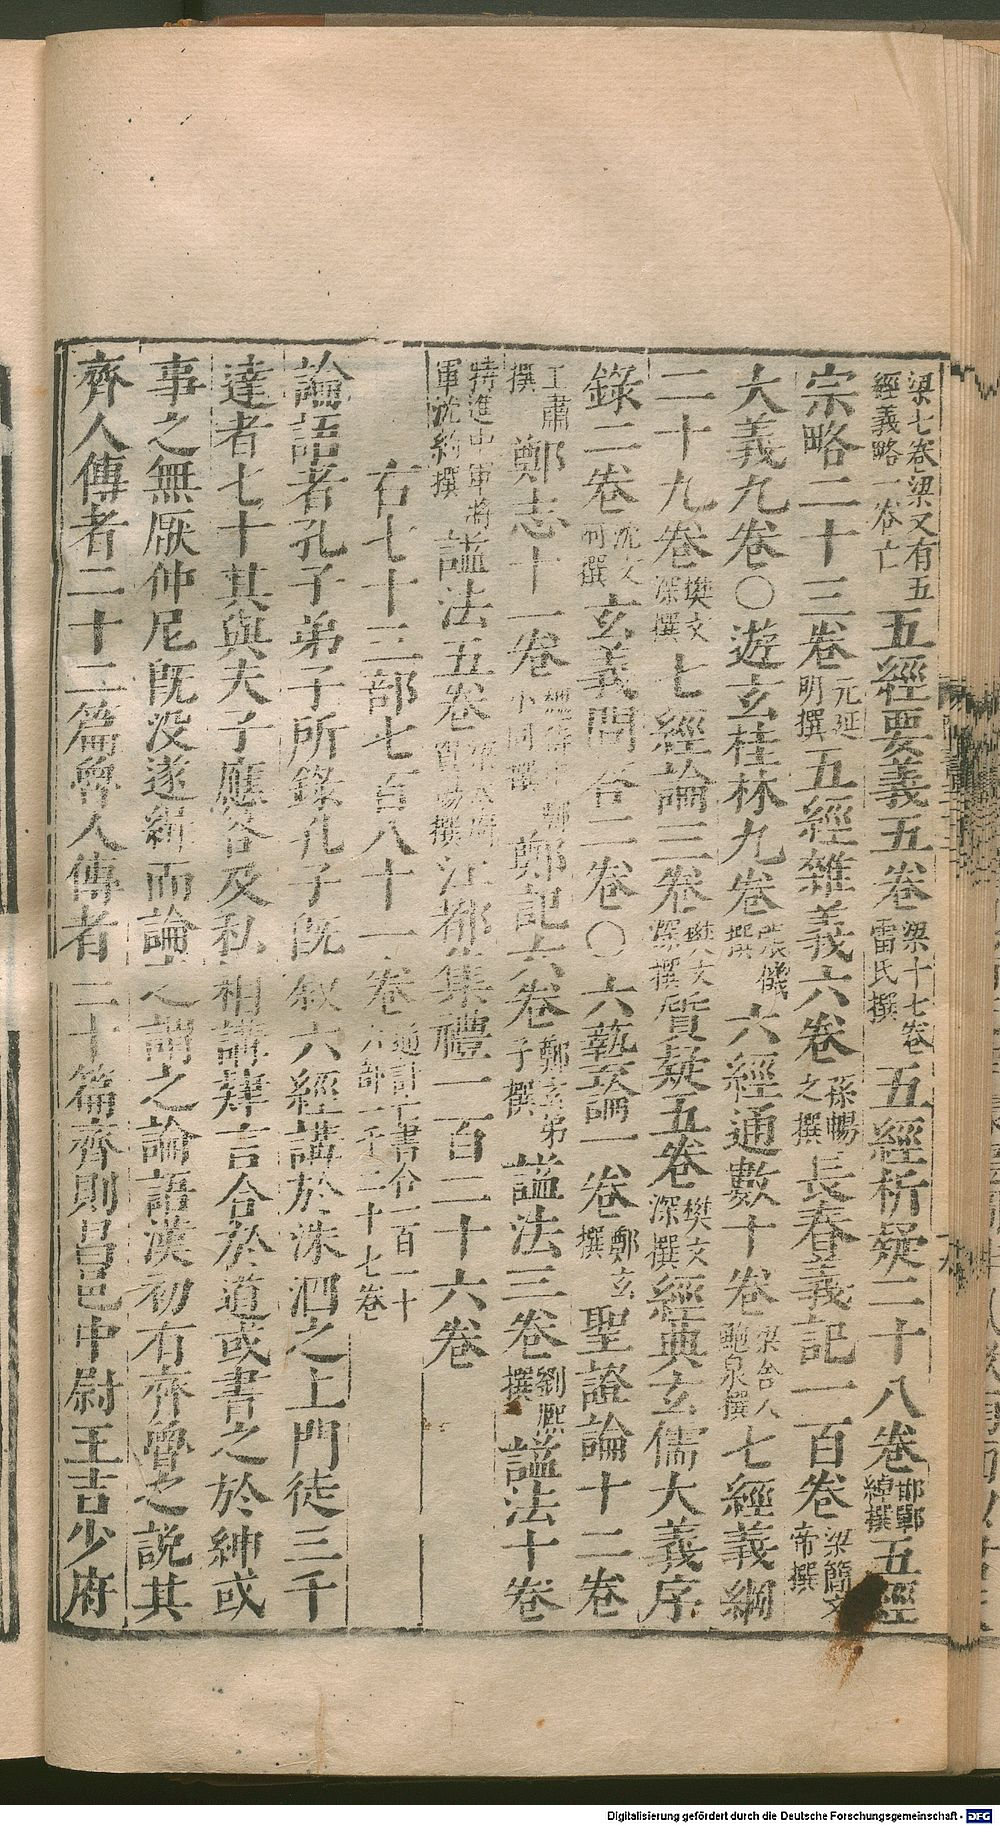 梁七卷梁又有五經義略一卷亡五經要義五卷梁十七卷雷氏撰五經析疑二十八卷邯鄲綽撰五經
宗略二十三卷元延明撰五經雜義六卷孫暢之撰長春義記一百卷梁簡文帝撰
大義九卷〇遊玄桂林九卷張譏撰六經通數十卷梁舍人鮑泉撰七經義綱
二十九卷樊文深撰七經論三卷樊文深撰質疑五卷樊文深撰經典玄儒大義序
錄二卷沈文阿撰玄義問答二卷〇六藝論一卷鄭玄撰聖證論十二卷
王肅撰鄭志十一卷小同撰鄭記六卷鄭玄弟子撰謚法三卷劉熙撰謚法十卷
特進中軍將軍沈約撰謚法五卷賀瑒撰江都集禮一百二十六卷
右七十三部七百八十一卷通計亡書合一百一十六部一千二十七卷
論語者孔子弟子所錄孔子既敘六經講於洙泗之上門徒三千
達者七十其與夫子應答及私相講肄言合於道或書之於紳或
事之無厭仲尼既没遂緝而論之謂之論語漢初有齊魯之說其
齊人傳者二十二篇魯人傳者二十篇齊則昌邑中尉王吉少府
Digitalisierung gefördert durch die Deutsche Forschungsgemeinschaft - DFG